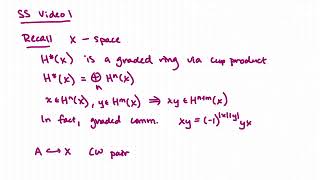 SS Video 1
Recall X - space
H*(X) is a graded ring via cup product
H*(X) = ⊕ₙ Hⁿ(X)
x ∈ Hⁿ(X), y ∈ Hᵐ(X) ⇒ xy ∈ Hⁿ⁺ᵐ(X)
In fact, graded comm. xy = (-1)^{|x||y|} yx
A ↪ X CW pair